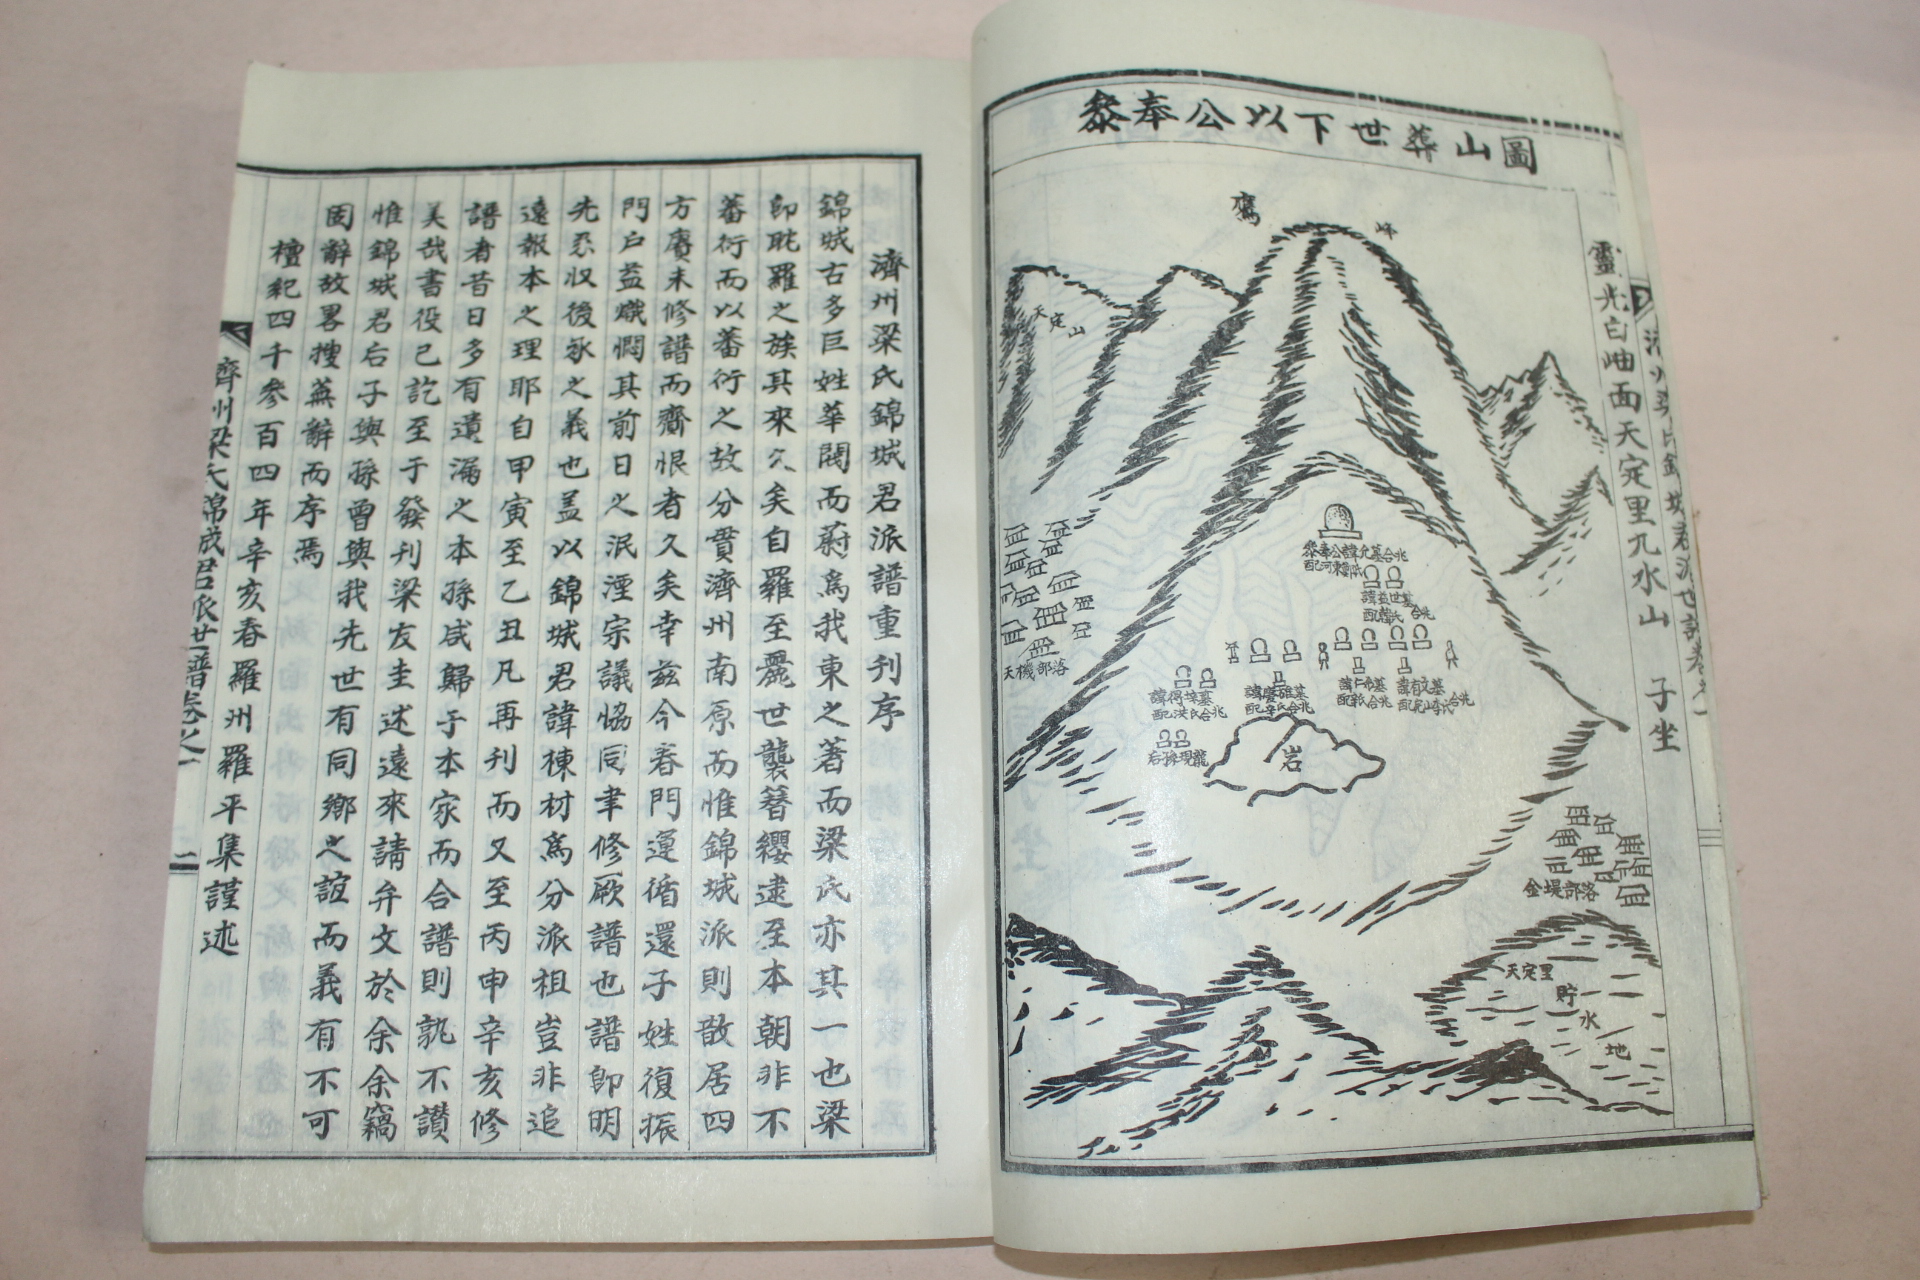 參奉公以下世葬山圖
靈光白岫面天定里九水山 子坐
鷹
峰
天定山
參奉公諱允墓合兆
諱益世墓
天機部落
諱得埈墓
配洪氏合兆
諱仁希墓
諱有文墓
后孫現龍
岩
金堤部落
天定里
貯
水
地
濟州梁氏錦城君派譜重刊序
錦城古多巨姓華閥而蔚爲我東之著而梁氏亦其一也梁
卽耽羅之族其來久矣自羅至麗世襲簪纓逮至本朝非不
蕃衍而以蕃衍之故分貫濟州南原而惟錦城派則散居四
方賡未修譜而齎恨者久矣幸玆今春門運循還子姓復振
門戶益熾憫其前日之泯湮宗議恊同聿修厥譜也譜卽明
先系収後承之義也盖以錦城君諱棟材爲分派祖豈非追
遠報本之理耶自甲寅至乙丑凡再刊而又至丙申辛亥修
譜者昔日多有遺漏之本孫咸歸于本家而合譜則孰不讚
美哉書役已訖至于發刊梁友圭述遠來請弁文於余余竊
惟錦城君后子與孫曾與我先世有同鄕之誼而義有不可
固辭故畧搜蕪辭而序焉
檀紀四千參百四年辛亥春羅州羅平集謹述
濟州梁氏錦城君派世譜卷之一
二